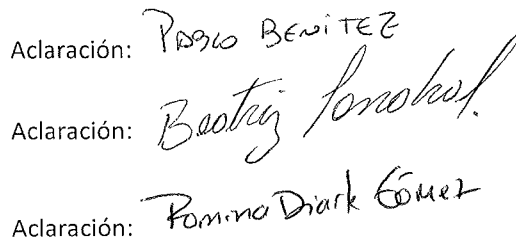 Aclaración: PABLO BENITEZ
Aclaración: Beatriz
Aclaración: Romina Diark Gómez